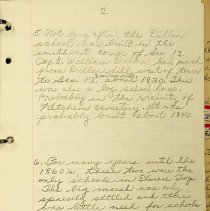 2
5. Not long after, the Dillon
school was built in the
southwest corner of Sec. 13.
Capt. William Dillon had moved
from Dillon, west of town
to Sec 13, about 1830. This
was also a log school house.
Probably in the vicinity of
Ketchum Cemetery. It was
probably built about 1840
6. For many years until the
1860's, these two were the
only schools in Elmira Twp.
The big marsh was only
sparsely settled and there
was little need for schools